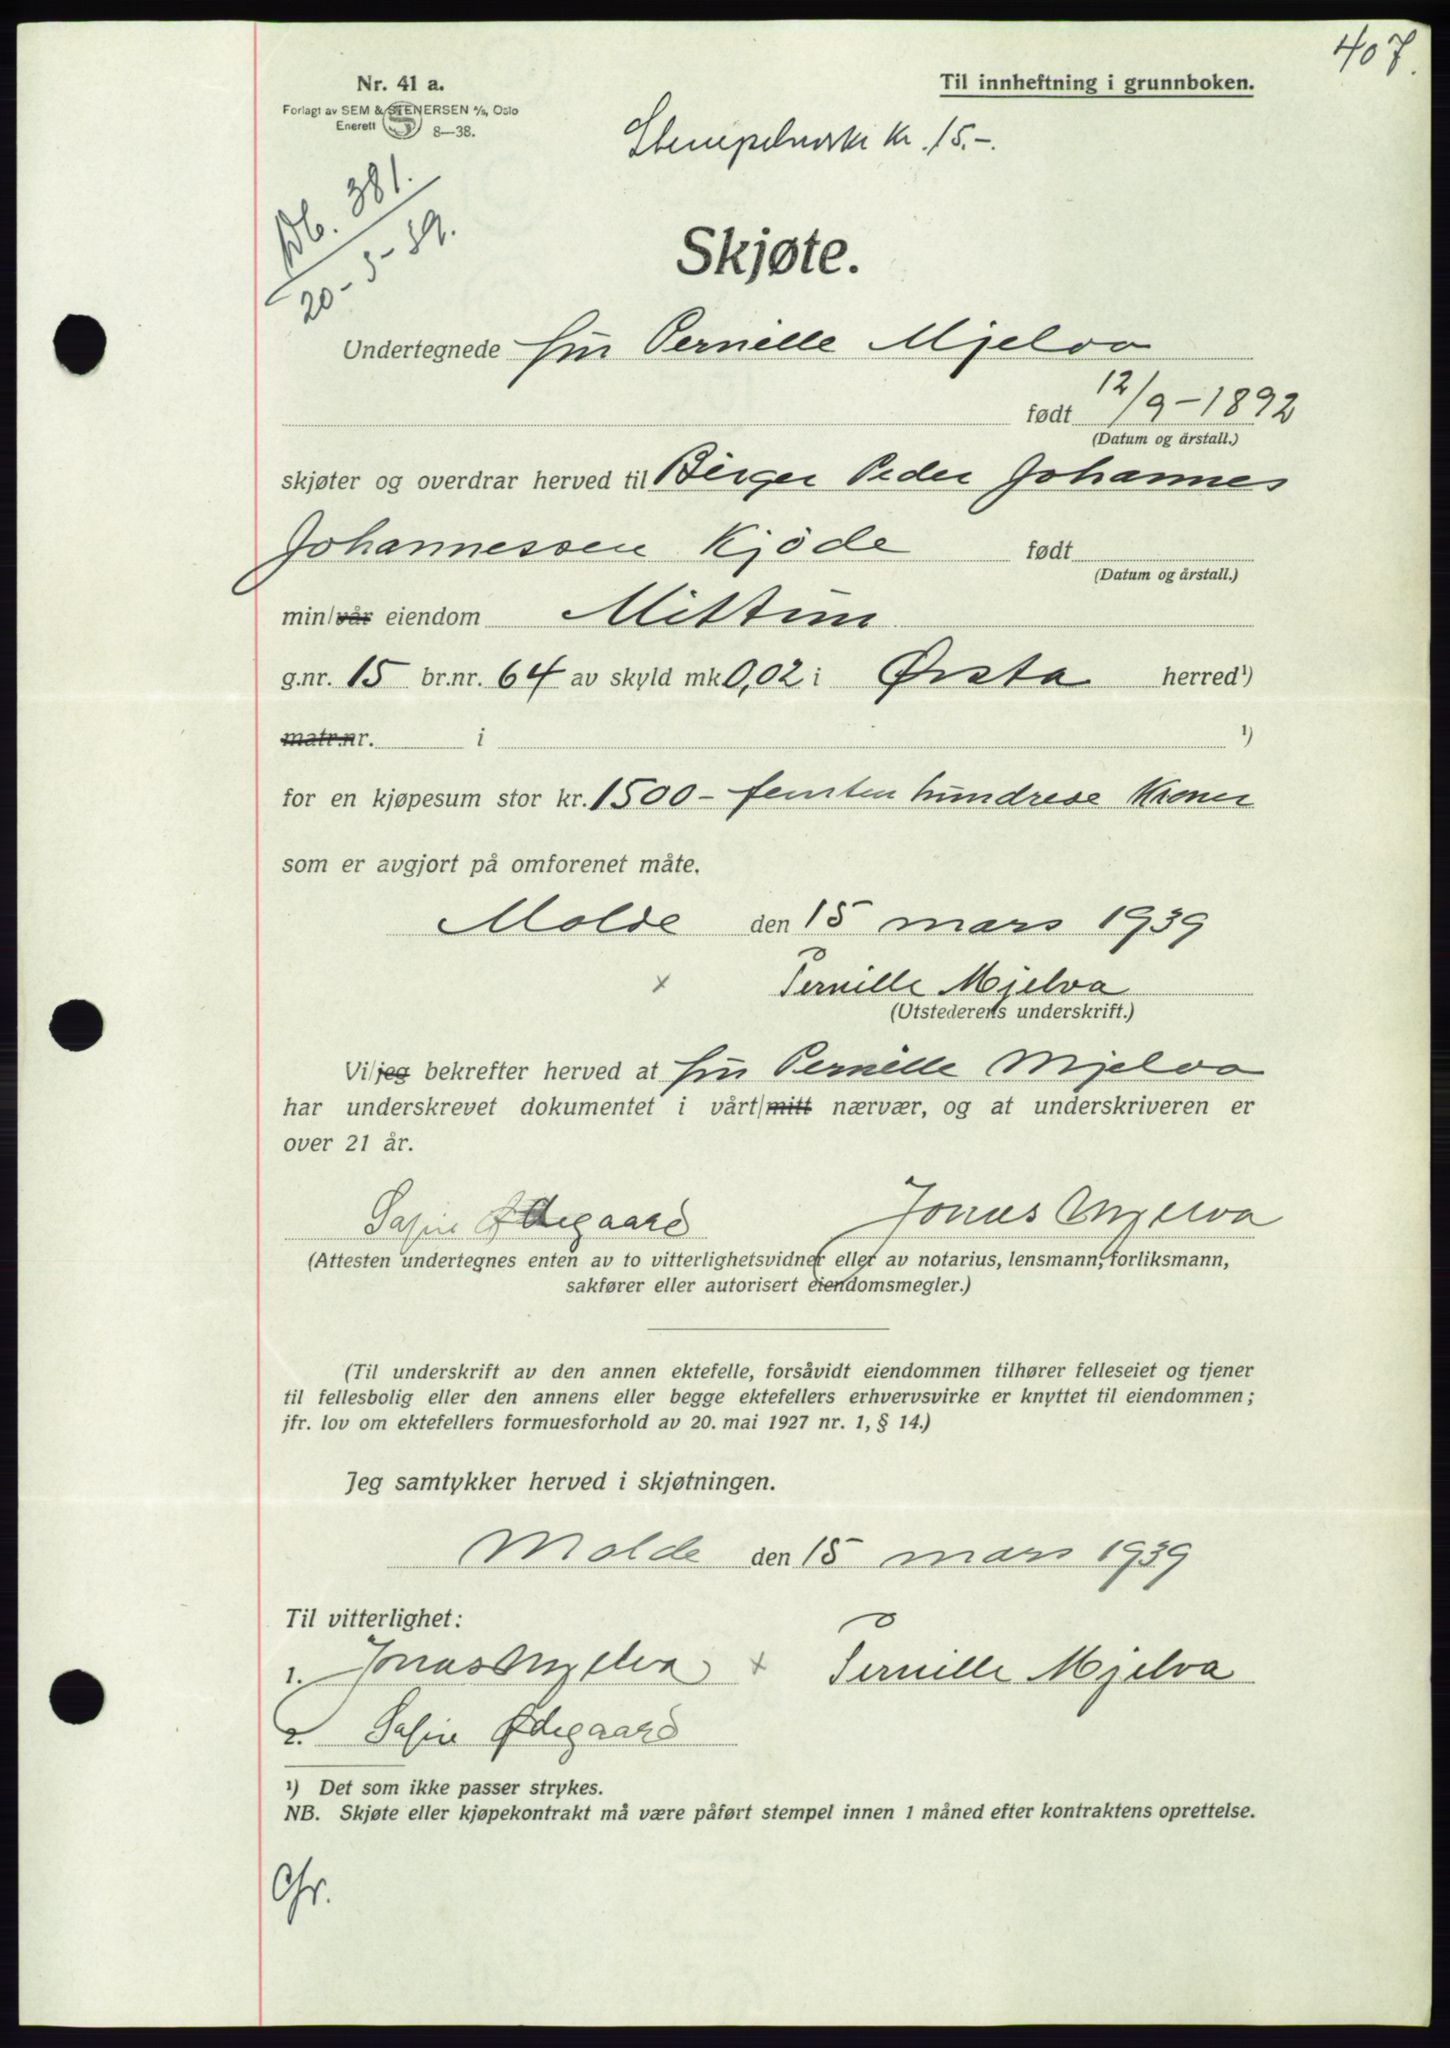 407.
Nr. 41 a.
Til innheftning i grunnboken.
Forlagt av SEM & STENERSEN A/S, Oslo
Enerett 8—38.
Stempelmerke kr. 15.-.
Db. 381.
20-3-39.
Skjøte.
Undertegnede fru Pernille Mjelva
født 12/9-1892
(Datum og årstall.)
skjøter og overdrar herved til Birger Peder Johannes
Johannessen Kjøde født
(Datum og årstall.)
min/vår eiendom Mittun
g.nr. 15 br.nr. 64 av skyld mk 0,02 i Ørsta herred¹)
matr.nr. i ¹)
for en kjøpesum stor kr. 1500- femten hundrede Kroner
som er avgjort på omforenet måte.
Molde den 15 mars 1939
x Pernille Mjelva
(Utstederens underskrift.)
Vi/jeg bekrefter herved at fru Pernille Mjelva
har underskrevet dokumentet i vårt/mitt nærvær, og at underskriveren er
over 21 år.
Ødegaard Jonas Mjelva
(Attesten undertegnes enten av to vitterlighetsvidner eller av notarius, lensmann, forliksmann,
sakfører eller autorisert eiendomsmegler.)
(Til underskrift av den annen ektefelle, forsåvidt eiendommen tilhører felleseiet og tjener
til fellesbolig eller den annens eller begge ektefellers erhvervsvirke er knyttet til eiendommen;
jfr. lov om ektefellers formuesforhold av 20. mai 1927 nr. 1, § 14.)
Jeg samtykker herved i skjøtningen.
Molde den 15 mars 1939
Til vitterlighet:
1. Jonas Mjelva x Pernille Mjelva
2. Ødegaard
¹) Det som ikke passer strykes.
NB. Skjøte eller kjøpekontrakt må være påført stempel innen 1 måned efter kontraktens oprettelse.